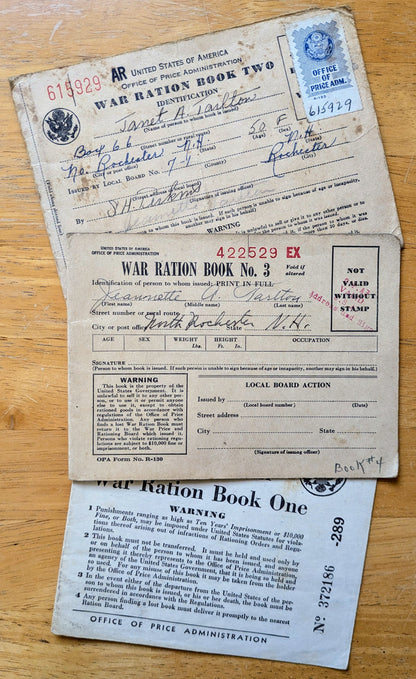 615929 AR UNITED STATES OF AMERICA
OFFICE OF PRICE ADMINISTRATION
WAR RATION BOOK TWO
IDENTIFICATION
OFFICE OF
PRICE ADM.
615929
Janet A. Tarlton
(Name of person to whom book is issued)
Box 66
(Street number or rural route)
50 F
No. Rochester N.H.
(City or post office) (State) (Age) (Sex)
ISSUED BY LOCAL BOARD NO. 7-9 N.H. Rochester
(County) (State) (City)
By
(Signature of issuing officer)
WARNING
UNITED STATES OF AMERICA
OFFICE OF PRICE ADMINISTRATION
422529 EX
WAR RATION BOOK No. 3 Void if altered
NOT
VALID
WITHOUT
STAMP
Identification of person to whom issued: PRINT IN FULL
Jeannette A. Tarlton
(First name) (Middle name) (Last name)
Street number or rural route
City or post office North Rochester State N.H.
AGE SEX WEIGHT HEIGHT OCCUPATION
Lbs. Ft. In.
SIGNATURE
(Person to whom book is issued. If such person is unable to sign because of age or incapacity, another may sign in his behalf.)
WARNING
This book is the property of the
United States Government. It is
unlawful to sell it to any other per-
son, or to use it or permit anyone
else to use it, except to obtain
rationed goods in accordance with
regulations of the Office of Price
Administration. Any person who
finds a lost War Ration Book must
return it to the War Price and
Rationing Board which issued it.
Persons who violate rationing regu-
lations are subject to $10,000 fine
or imprisonment, or both.
OPA Form No. R-130
LOCAL BOARD ACTION
Issued by
(Local board number) (Date)
Street address
City State
(Signature of issuing officer)
Book #4
War Ration Book One
WARNING
1 Punishments ranging as high as Ten Years' Imprisonment or $10,000
Fine, or Both, may be imposed under United States Statutes for vio-
lations thereof arising out of infractions of Rationing Orders and Regu-
lations.
2 This book must not be transferred. It must be held and used only by
or on behalf of the person to whom it has been issued, and anyone
presenting it thereby represents to the Office of Price Administration,
an agency of the United States Government, that it is being so held and
so used. For any misuse of this book it may be taken from the holder
by the Office of Price Administration.
3 In the event either of the departure from the United States of the per-
son to whom this book is issued, or his or her death, the book must be
surrendered in accordance with the Regulations.
4 Any person finding a lost book must deliver it promptly to the nearest
Ration Board.
OFFICE OF PRICE ADMINISTRATION
No 372186 -289